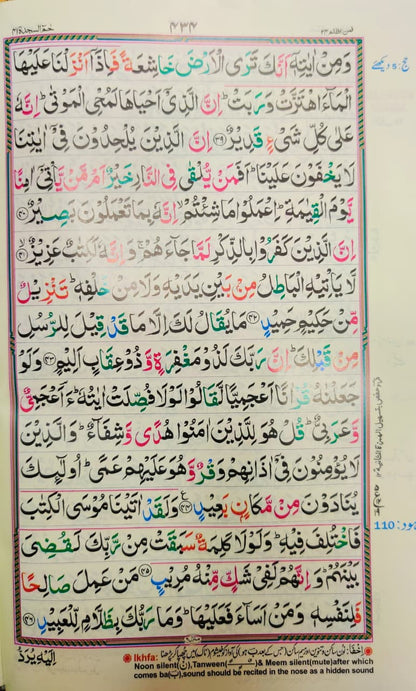 حٰمٓ السجدۃ ۴۱
۴۳۴
فمن اظلم ۲۴
وَمِنْ اٰیٰتِهٖۤ اَنَّكَ تَرَی الْاَرْضَ خَاشِعَةً فَاِذَاۤ اَنْزَلْنَا عَلَیْهَا
الْمَآءَ اهْتَزَّتْ وَرَبَتْ ؕ اِنَّ الَّذِیْۤ اَحْیَاهَا لَمُحْیِ الْمَوْتٰی ؕ اِنَّهٗ
عَلٰی كُلِّ شَیْءٍ قَدِیْرٌ ﴿۳۹﴾ اِنَّ الَّذِیْنَ یُلْحِدُوْنَ فِیْۤ اٰیٰتِنَا
لَا یَخْفَوْنَ عَلَیْنَا ؕ اَفَمَنْ یُّلْقٰی فِی النَّارِ خَیْرٌ اَمْ مَّنْ یَّاْتِیْۤ اٰمِنًا
یَّوْمَ الْقِیٰمَةِ ؕ اِعْمَلُوْا مَا شِئْتُمْ ۙ اِنَّهٗ بِمَا تَعْمَلُوْنَ بَصِیْرٌ ﴿۴۰﴾
اِنَّ الَّذِیْنَ كَفَرُوْا بِالذِّكْرِ لَمَّا جَآءَهُمْ ۚ وَاِنَّهٗ لَكِتٰبٌ عَزِیْزٌ ﴿۴۱﴾
لَّا یَاْتِیْهِ الْبَاطِلُ مِنْۢ بَیْنِ یَدَیْهِ وَلَا مِنْ خَلْفِهٖ ؕ تَنْزِیْلٌ
مِّنْ حَكِیْمٍ حَمِیْدٍ ﴿۴۲﴾ مَا یُقَالُ لَكَ اِلَّا مَا قَدْ قِیْلَ لِلرُّسُلِ
مِنْ قَبْلِكَ ؕ اِنَّ رَبَّكَ لَذُوْ مَغْفِرَةٍ وَّذُوْ عِقَابٍ اَلِیْمٍ ﴿۴۳﴾ وَلَوْ
جَعَلْنٰهُ قُرْاٰنًا اَعْجَمِیًّا لَّقَالُوْا لَوْلَا فُصِّلَتْ اٰیٰتُهٗ ؕ ءَاَعْجَمِیٌّ
وَّعَرَبِیٌّ ؕ قُلْ هُوَ لِلَّذِیْنَ اٰمَنُوْا هُدًی وَّشِفَآءٌ ؕ وَالَّذِیْنَ
لَا یُؤْمِنُوْنَ فِیْۤ اٰذَانِهِمْ وَقْرٌ وَّهُوَ عَلَیْهِمْ عَمًی ؕ اُولٰٓئِكَ
یُنَادَوْنَ مِنْ مَّكَانٍۭ بَعِیْدٍ ﴿۴۴﴾ وَلَقَدْ اٰتَیْنَا مُوْسَی الْكِتٰبَ
فَاخْتُلِفَ فِیْهِ ؕ وَلَوْلَا كَلِمَةٌ سَبَقَتْ مِنْ رَّبِّكَ لَقُضِیَ
بَیْنَهُمْ ؕ وَاِنَّهُمْ لَفِیْ شَكٍّ مِّنْهُ مُرِیْبٍ ﴿۴۵﴾ مَنْ عَمِلَ صَالِحًا
فَلِنَفْسِهٖ وَمَنْ اَسَآءَ فَعَلَیْهَا ؕ وَمَا رَبُّكَ بِظَلَّامٍ لِّلْعَبِیْدِ ﴿۴۶﴾
اِلَیْهِ یُرَدُّ
Ikhfa: Noon silent(نْ),Tanween & Meem silent(mute)after which
comes ba(ب),sound should be recited in the nose as a hidden sound
حج: 5 دیکھئے
ہود: 110